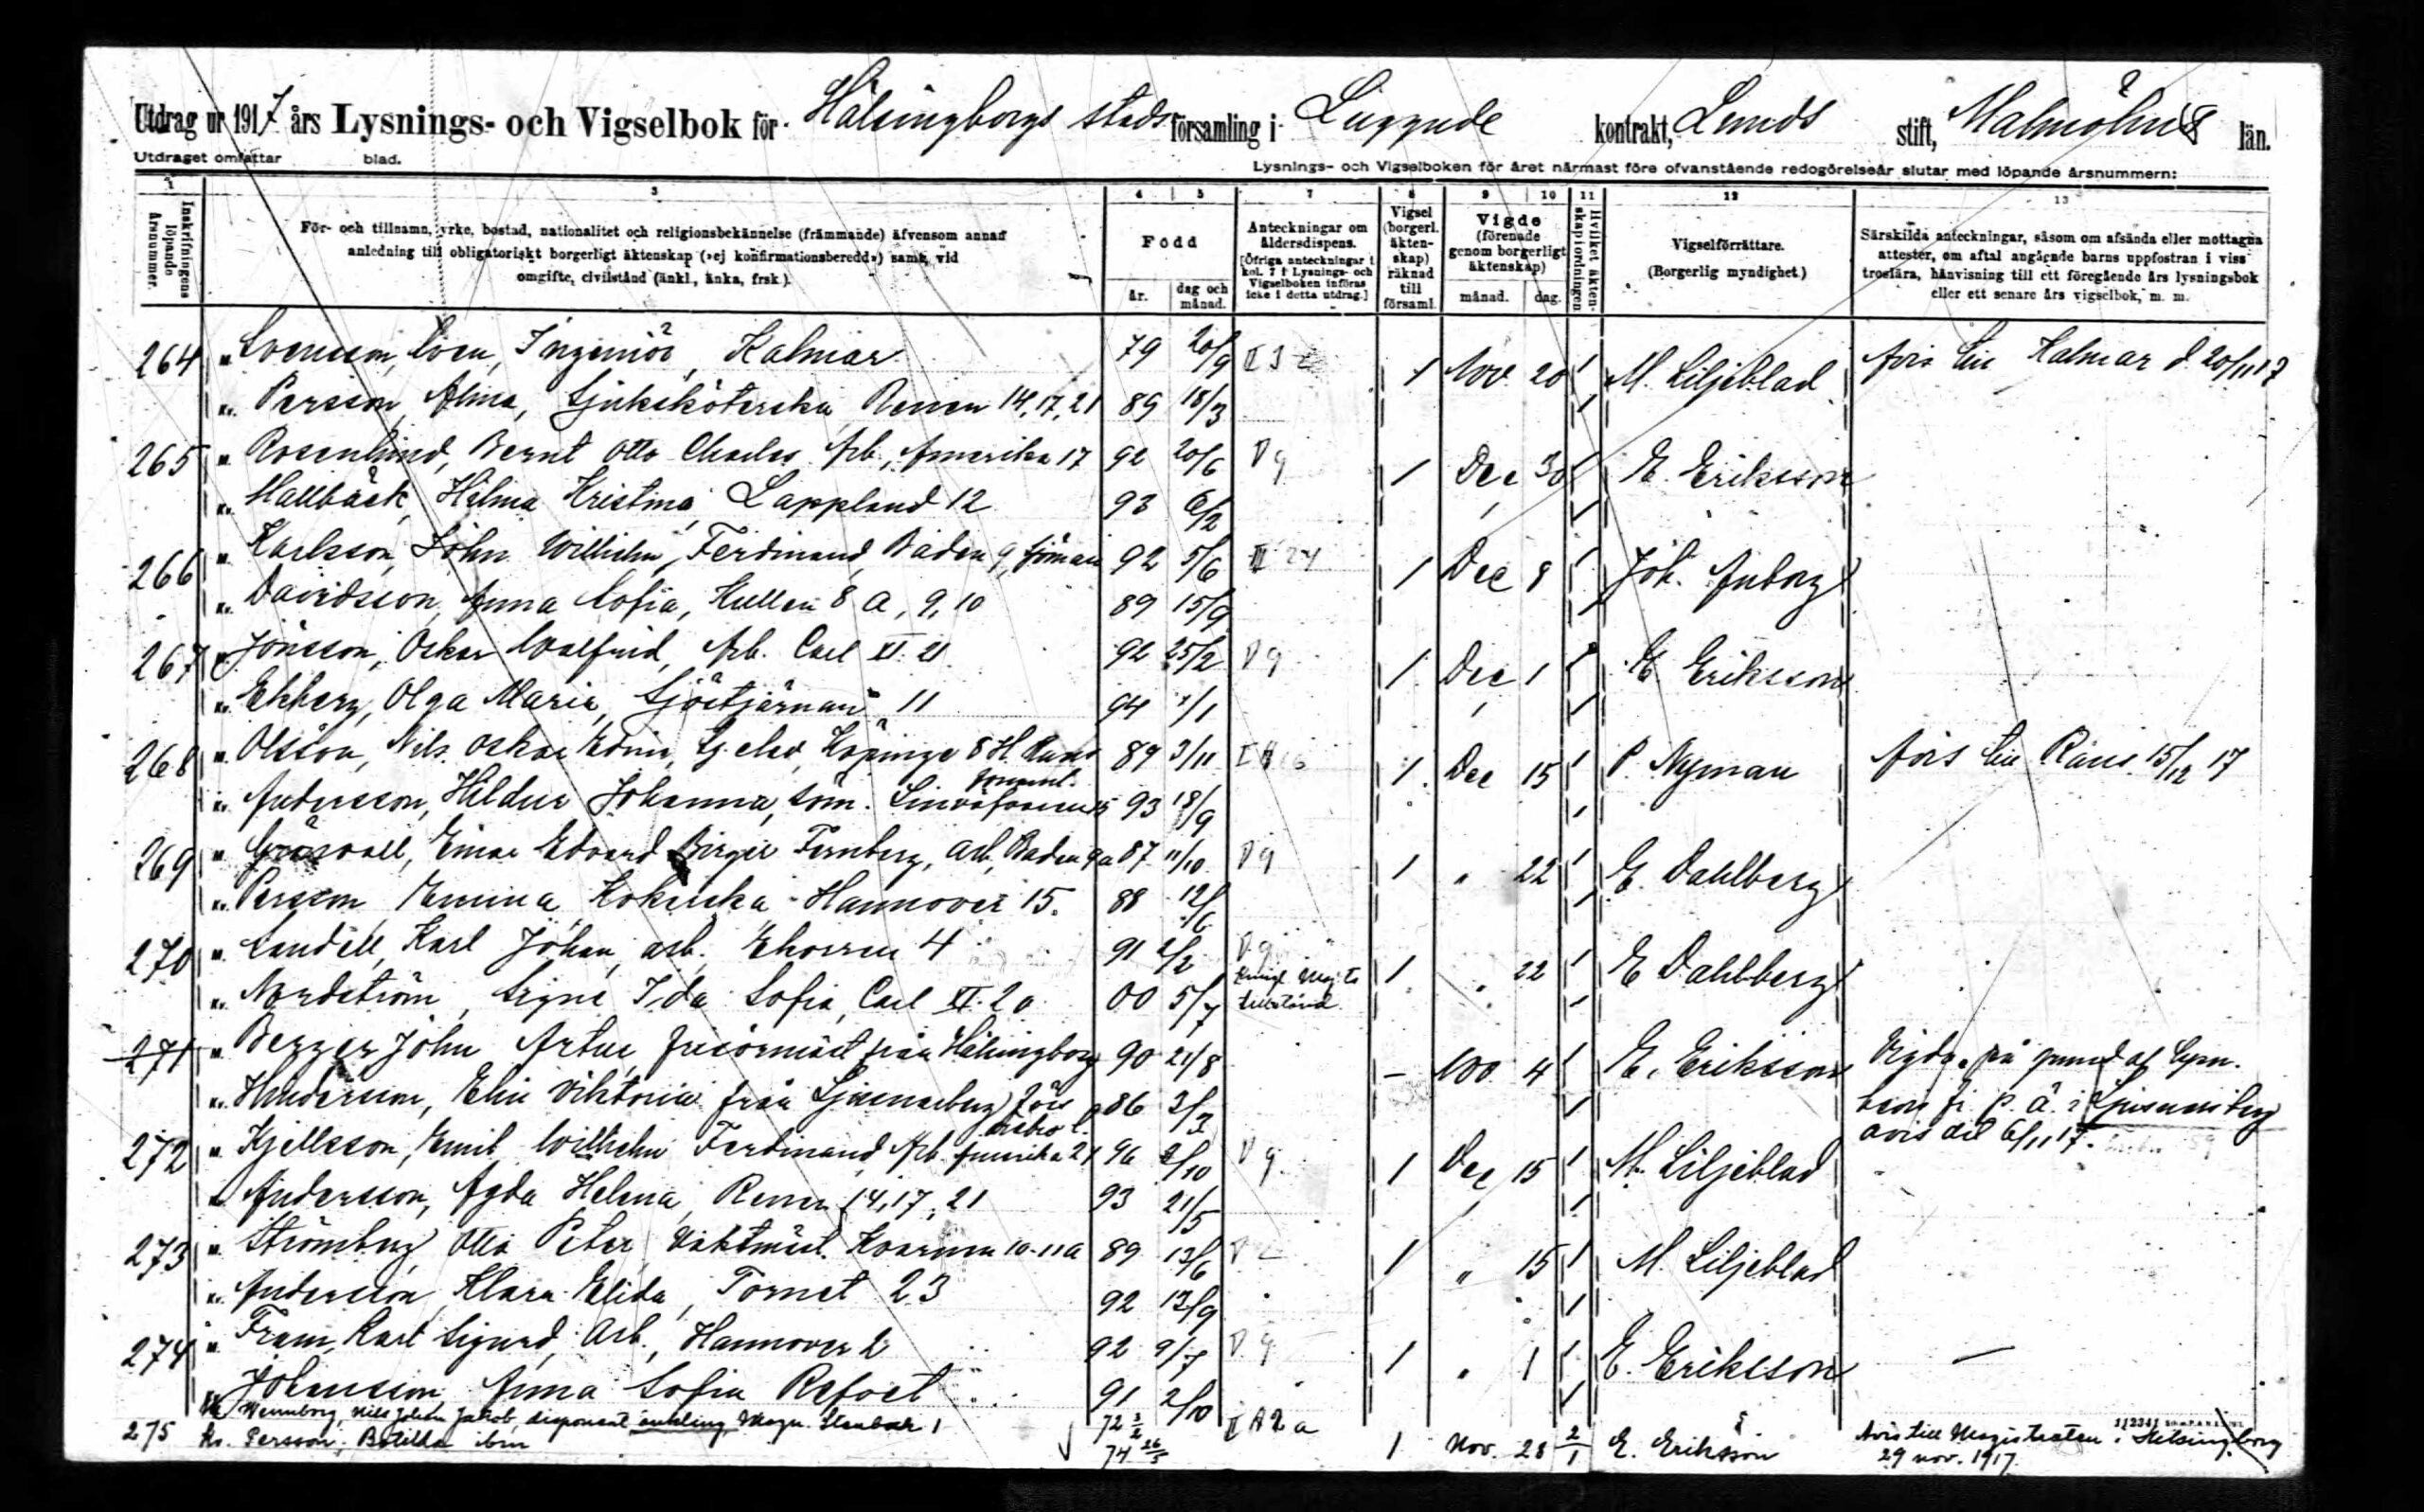 Utdrag ur 1917 års Lysnings- och Vigselbok för Hälsingborgs stads församling i Luggude kontrakt, Lunds stift, Malmöhus län.
Utdraget omfattar blad. Lysnings- och Vigselboken för året närmast före ofvanstående redogörelseår slutar med löpande årsnummern:
1 3 4 5 7 8 9 10 11 12 13
Inskrifningens löpande årsnummer.
För- och tillnamn, yrke, bostad, nationalitet och religionsbekännelse (främmande) äfvensom annan anledning till obligatoriskt borgerligt äktenskap (»ej konfirmationsberedd») samt, vid omgifte, civilstånd (änkl., änka, frsk.).
Född
år. dag och månad.
Anteckningar om åldersdispens. [Öfriga anteckningar i kol. 7 i Lysnings- och Vigselboken införas icke i detta utdrag.]
Vigsel (borgerl. äktenskap) räknad till församl.
Vigde (förenade genom borgerligt äktenskap)
månad. dag.
Hvilket äktenskap i ordningen
Vigselförrättare. (Borgerlig myndighet.)
Särskilda anteckningar, såsom om afsända eller mottagna attester, om aftal angående barns uppfostran i viss troslära, hänvisning till ett föregående års lysningsbok eller ett senare års vigselbok, m. m.
264 m. Svensson, Sven, Ingeniör, Kalmar 79 20/9 II 3 1 Nov 20 1 M. Liljeblad Avis till Kalmar d. 20/11 17
kv. Persson, Alma, Sjuksköterska, Renen 14, 17, 21 89 18/3 1
265 m. Rosenlund, Bernt Otto Charles Arb., Amerika 17 92 20/6 V 9 1 Dec 30 1 E. Eriksson
kv. Hallbäck, Hilma Kristina, Lappland 12 93 6/2 1
266 m. Karlsson, John Wilhelm Ferdinand, Baden 9, sjöman 92 5/6 III 24 1 Dec 8 1 Joh. Anborg
kv. Davidsson, Anna Sofia, Kullen 8 a, 9, 10 89 15/9 1
267 m. Jönsson, Oskar Walfrid, Arb. Carl XI. 21 92 25/2 V 9 1 Dec 1 1 E. Eriksson
kv. Ekberg, Olga Maria, Sjöstjärnan 11 94 1/1 1
268 m. Olsson, Nils Oskar Edvin, Köpinge 8 89 3/11 1 Dec 15 1 P. Nyman Avis till Raus 15/12 17
kv. Andersson, Hildur Johanna, söm. 93 18/9 1
269 m. Einar Edvard Birger Fernberg, arb, Baden 9a 87 11/10 V 9 1 " 22 1 E. Dahlberg
kv. Persson, Emma, Kokerska Hannover 15. 88 12/6 1
270 m. Sandell, Karl Johan, arb. Ekorren 4 91 2/2 V 9 1 " 22 1 E Dahlberg
kv. Nordström, Signe Ida Sofia, Carl XI. 20 00 5/7 Kungl Maj:ts tillstånd 1
271 m. Bezzer John Artur, frisörmäst från Hälsingborg 90 21/8 - Nov 4 1 E. Eriksson Vigda på grund af lysn.
kv. Elin Viktoria från Ljusnarsberg, Örebro l. 86 3/3 1 bevis fr. p. ä. i Ljusnarsberg
avis dit 6/11 17.
272 m. Kjellsson, Emil Wilhelm Ferdinand, Arb. Amerika 21 96 2/10 V 9 1 Dec 15 1 M. Liljeblad
kv. Andersson, Agda Helena, Renen 14, 17, 21 93 21/5 1
273 m. Strömberg, Otto Peter, Vaktmäst. Kvarnen 10-11a 89 13/6 1 " 15 1 M. Liljeblad
kv. Andersson, Klara Elida, Tornet 23 92 13/9 1
274 m. Fram, Karl Sigurd, Arb., Hannover 2 92 9/7 V 9 1 " 1 1 E. Eriksson —
kv. Johansson Anna Sofia 91 2/10 1
275 m. Wennborg, Nils Johan Jakob, disponent änkling Magn. Stenbock 1 72 3/2 II A 2 a 1 Nov. 28 2/1 E. Eriksson Avis till Magistraten i Helsingborg
kv. Persson, Botilda ibm 74 26/5 29 nov. 1917.